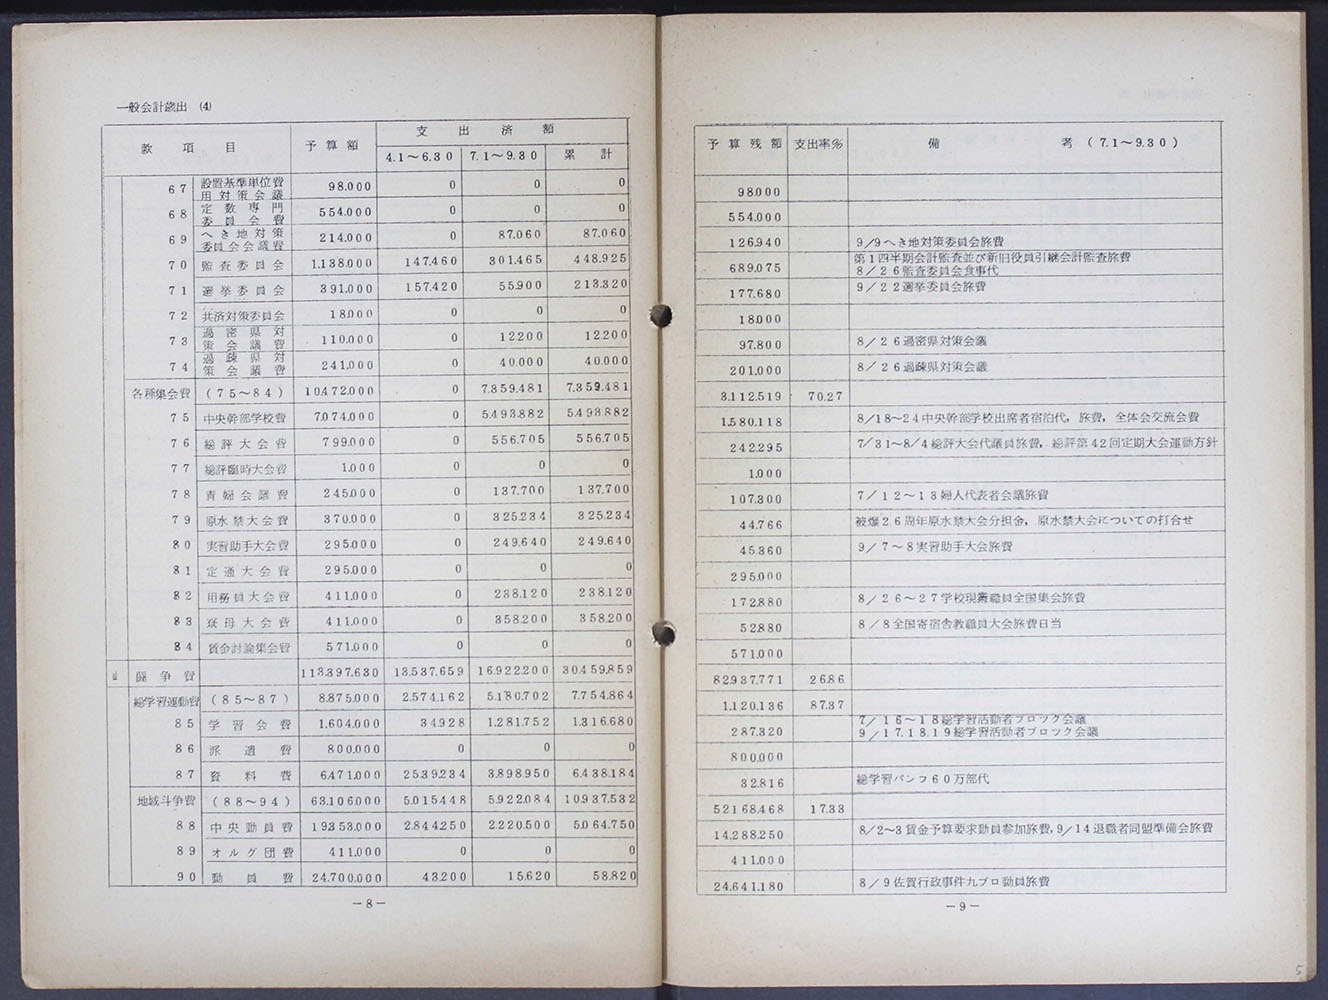 一般会計歳出 (4)
款 項 目 予算額 支出済額
4.1～6.30 7.1～9.30 累計
67 設置基準単位費用対策会議 98.000 0 0 0
68 定数専門委員会費 554.000 0 0 0
69 へき地対策委員会会議費 214.000 0 87.060 87.060
70 監査委員会 1.138.000 147.460 301.465 448.925
71 選挙委員会 391.000 157.420 55.900 213.320
72 共済対策委員会 18.000 0 0 0
73 過密県対策会議費 110.000 0 12200 12.200
74 過疎県対策会議費 241.000 0 40.000 40.000
各種集会費 (75～84) 10.472.000 0 7.359.481 7.359.481
75 中央幹部学校費 7.074.000 0 5.493.882 5.493.882
76 総評大会費 799.000 0 556.705 556.705
77 総評臨時大会費 1.000 0 0 0
78 青婦会議費 245.000 0 137.700 137.700
79 原水禁大会費 370.000 0 325.234 325.234
80 実習助手大会費 295.000 0 249.640 249.640
81 定通大会費 295.000 0 0 0
82 用務員大会費 411.000 0 238.120 238.120
83 寮母大会費 411.000 0 358.200 358.200
84 賃金討論集会費 571.000 0 0 0
Ⅲ 闘争費 113.397.630 13.537.659 16.922.200 30.459.859
総学習運動費 (85～87) 8.875.000 2.574.162 5.180.702 7.754.864
85 学習会費 1.604.000 34928 1.281.752 1.316.680
86 派遣費 800.000 0 0 0
87 資料費 6.471.000 2.539.234 3.898.950 6.438.184
地域斗争費 (88～94) 63.106.000 5.015.448 5.922.084 10.937.532
88 中央動員費 19.353.000 2.844.250 2.220.500 5.064.750
89 オルグ団費 411.000 0 0 0
90 動員費 24.700.000 43.200 15.620 58.820
－8－
予算残額 支出率% 備考 (7.1～9.30)
98.000
554.000
126.940 9/9へき地対策委員会旅費
689.075 第1四半期会計監査並び新旧役員引継会計監査旅費
8/26監査委員会食事代
177.680 9/22選挙委員会旅費
18.000
97.800 8/26過密県対策会議
201.000 8/26過疎県対策会議
3.112.519 70.27
1.580.118 8/18～24中央幹部学校出席者宿泊代，旅費，全体会交流会費
242.295 7/31～8/4総評大会代議員旅費，総評第42回定期大会運動方針
1.000
107.300 7/12～13婦人代表者会議旅費
44.766 被爆26周年原水禁大会分担金，原水禁大会についての打合せ
45.360 9/7～8実習助手大会旅費
295.000
172.880 8/26～27学校現業職員全国集会旅費
52.880 8/8全国寄宿舎教職員大会旅費日当
571.000
82.937.771 26.86
1.120.136 87.37
287.320 7/16～18総学習活動者ブロック会議
9/17.18.19総学習活動者ブロック会議
800.000
32.816 総学習パンフ60万部代
52.168.468 17.33
14.288.250 8/2～3賃金予算要求動員参加旅費，9/14退職者同盟準備会旅費
411.000
24.641.180 8/9佐賀行政事件九ブロ動員旅費
－9－
5